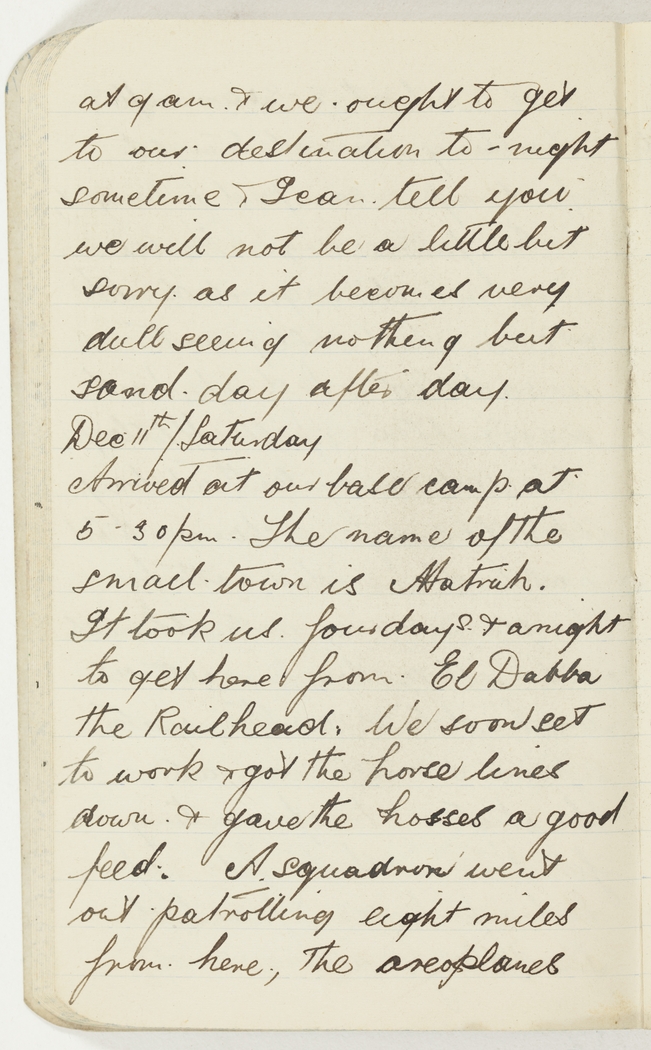 at 9 am. & we ought to get
to our destination to-night
sometime & I can tell you
we will not be a little bit
sorry as it becomes very
dull seeing nothing but
sand day after day.
Dec 11th/Saturday
Arrived at our base camp at
5-30 pm. The name of the
small town is Matruh.
It took us four days & a night
to get here from El Dabba
the Railhead. We soon set
to work & got the horse lines
down & gave the hosses a good
feed. A squadron went
out patrolling eight miles
from here, the areoplanes